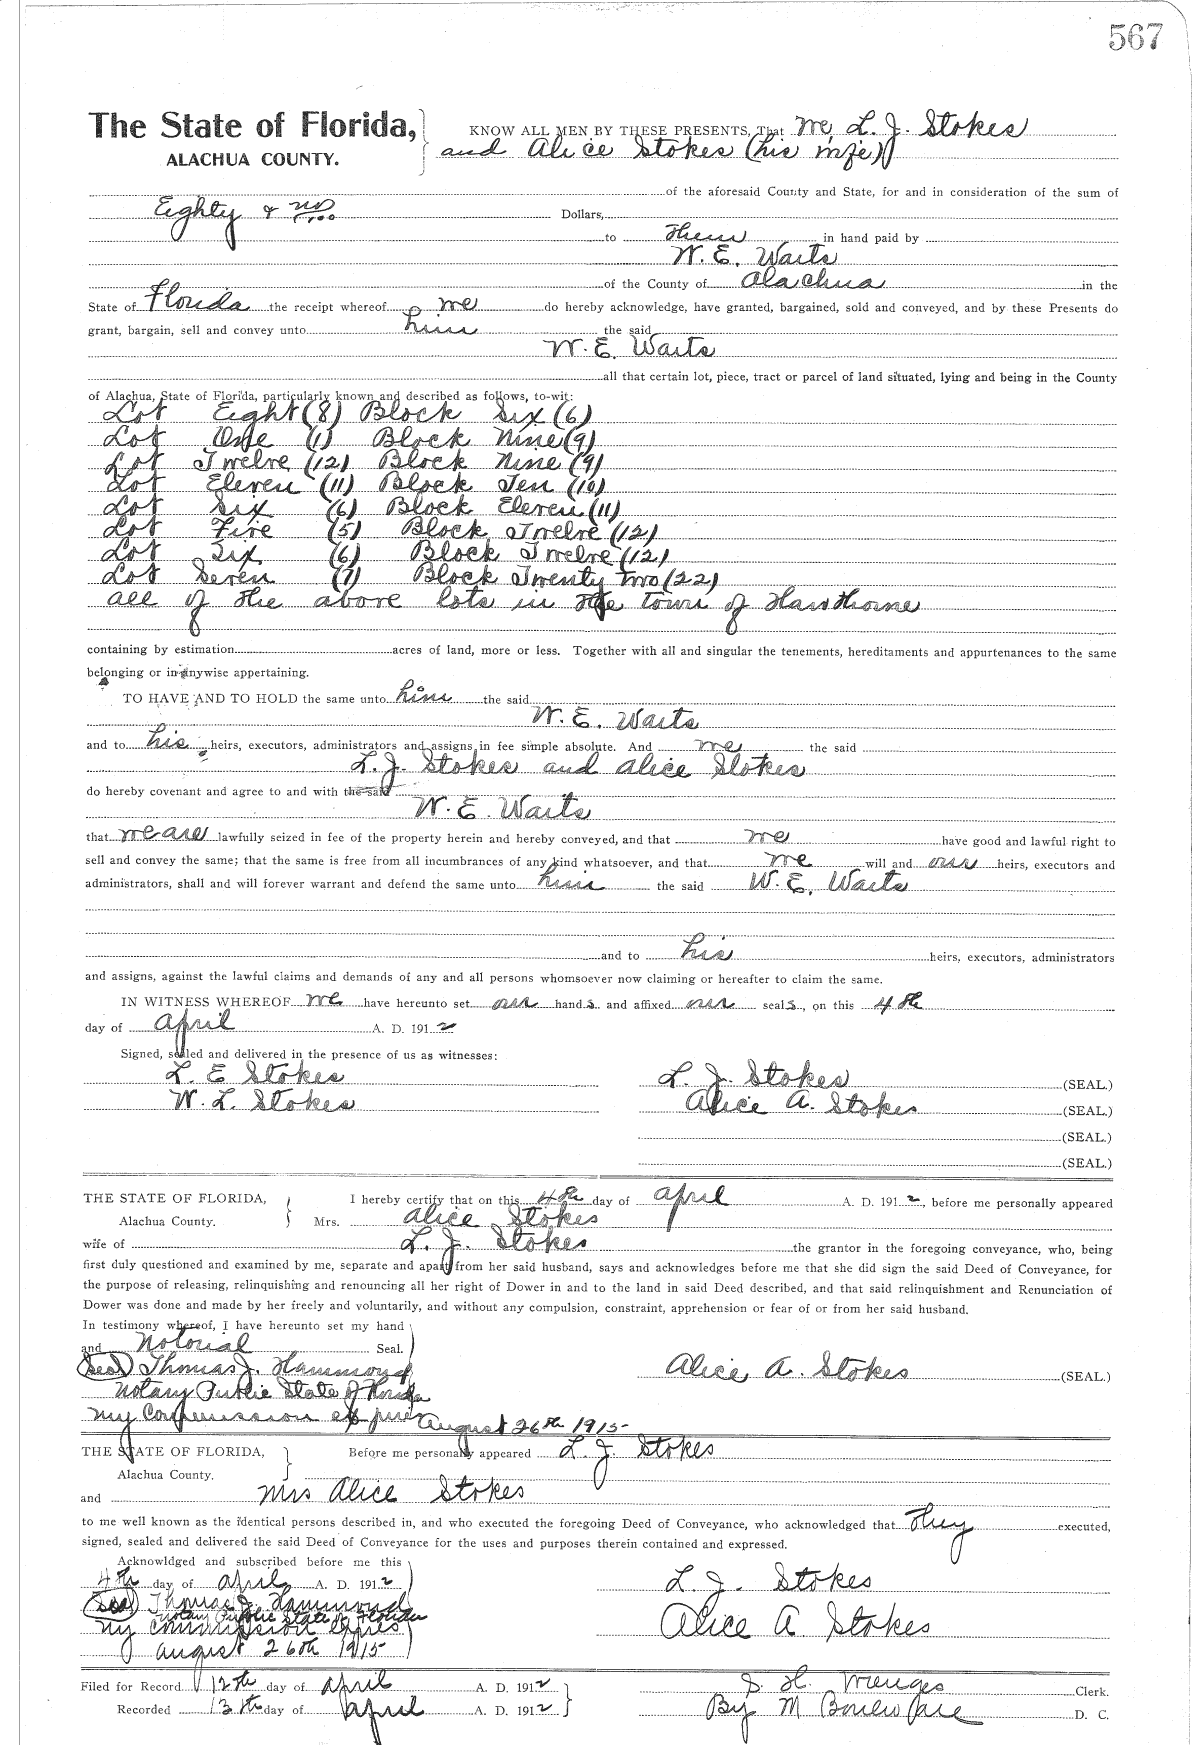 567
The State of Florida,
ALACHUA COUNTY.
KNOW ALL MEN BY THESE PRESENTS, That We, L. J. Stokes
and Alice Stokes (his wife)
of the aforesaid County and State, for and in consideration of the sum of
Eighty & no/100 Dollars,
to them in hand paid by
W. E. Waits
of the County of Alachua in the
State of Florida the receipt whereof we do hereby acknowledge, have granted, bargained, sold and conveyed, and by these Presents do
grant, bargain, sell and convey unto him the said
W. E. Waits
all that certain lot, piece, tract or parcel of land situated, lying and being in the County
of Alachua, State of Florida, particularly known and described as follows, to-wit:
Lot Eight (8) Block Six (6)
Lot One (1) Block Nine (9)
Lot Twelve (12) Block Nine (9)
Lot Eleven (11) Block Ten (10)
Lot Six (6) Block Eleven (11)
Lot Five (5) Block Twelve (12)
Lot Six (6) Block Twelve (12)
Lot Seven (7) Block Twenty two (22)
all of the above lots in the town of Hawthorne
containing by estimation acres of land, more or less. Together with all and singular the tenements, hereditaments and appurtenances to the same
belonging or in anywise appertaining.
TO HAVE AND TO HOLD the same unto him the said
W. E. Waits
and to his heirs, executors, administrators and assigns in fee simple absolute. And we the said
L. J. Stokes and Alice Stokes
do hereby covenant and agree to and with the said
W. E. Waits
that we are lawfully seized in fee of the property herein and hereby conveyed, and that we have good and lawful right to
sell and convey the same; that the same is free from all incumbrances of any kind whatsoever, and that we will and our heirs, executors and
administrators, shall and will forever warrant and defend the same unto him the said W. E. Waits
and to his heirs, executors, administrators
and assigns, against the lawful claims and demands of any and all persons whomsoever now claiming or hereafter to claim the same.
IN WITNESS WHEREOF we have hereunto set our hands and affixed our seals, on this 4th
day of April A. D. 1912
Signed, sealed and delivered in the presence of us as witnesses:
L. E Stokes L. J. Stokes (SEAL.)
W. L. Stokes Alice A. Stokes (SEAL.)
(SEAL.)
(SEAL.)
THE STATE OF FLORIDA, I hereby certify that on this 4th day of April A. D. 1912, before me personally appeared
Alachua County. Mrs. Alice Stokes
wife of L. J. Stokes the grantor in the foregoing conveyance, who, being
first duly questioned and examined by me, separate and apart from her said husband, says and acknowledges before me that she did sign the said Deed of Conveyance, for
the purpose of releasing, relinquishing and renouncing all her right of Dower in and to the land in said Deed described, and that said relinquishment and Renunciation of
Dower was done and made by her freely and voluntarily, and without any compulsion, constraint, apprehension or fear of or from her said husband.
In testimony whereof, I have hereunto set my hand
and Notorial Seal.
(Seal) Thomas J. Hammond Alice A. Stokes (SEAL.)
Notary Public State of Florida
My Commission expires August 26th 1915
THE STATE OF FLORIDA, Before me personally appeared L. J. Stokes
Alachua County.
and Mrs Alice Stokes
to me well known as the identical persons described in, and who executed the foregoing Deed of Conveyance, who acknowledged that they executed,
signed, sealed and delivered the said Deed of Conveyance for the uses and purposes therein contained and expressed.
Acknowldged and subscribed before me this
4th day of April A. D. 1912 L. J. Stokes
(Seal) Thomas J. Hammond
Notary Public State of Florida Alice A Stokes
My commission expires
August 26th 1915
Filed for Record 12th day of April A. D. 1912 S. H. Wienges Clerk.
Recorded 13th day of April A. D. 1912 By M D. C.